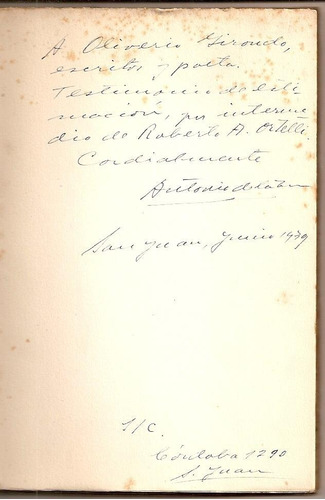 A Oliverio Girondo,
escritor y poeta.
Testimonio de esti-
mación, por interme-
dio de Roberto A. Ortelli.
Cordialmente
San Juan, Junio 1939
S/C.
Córdoba 1290
S. Juan